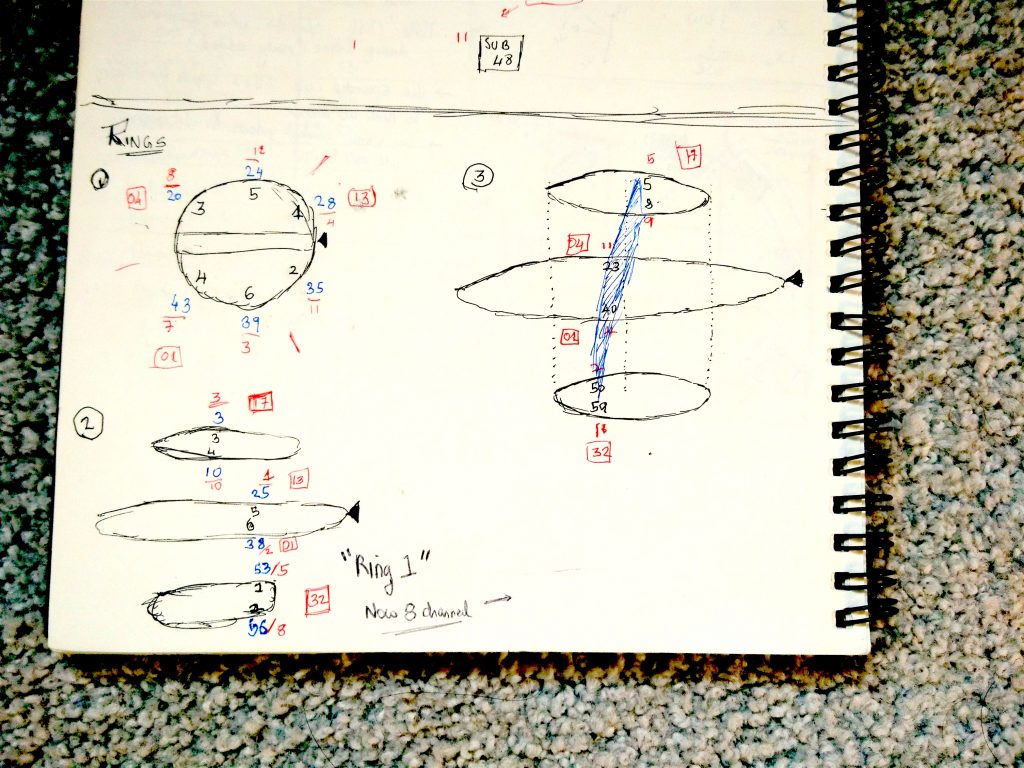 11
SUB
48
RINGS
1
12
24
8
20
04
5
3
4
28
4
13
4
2
6
43
7
35
11
39
3
01
2
3
17
3
3
4
10
10
4
13
25
5
6
38/2
01
53/5
1
2
32
56/8
"Ring 1"
Now 8 channel
3
5
17
5
8
9
04
11
23
40
01
4
59
18
32